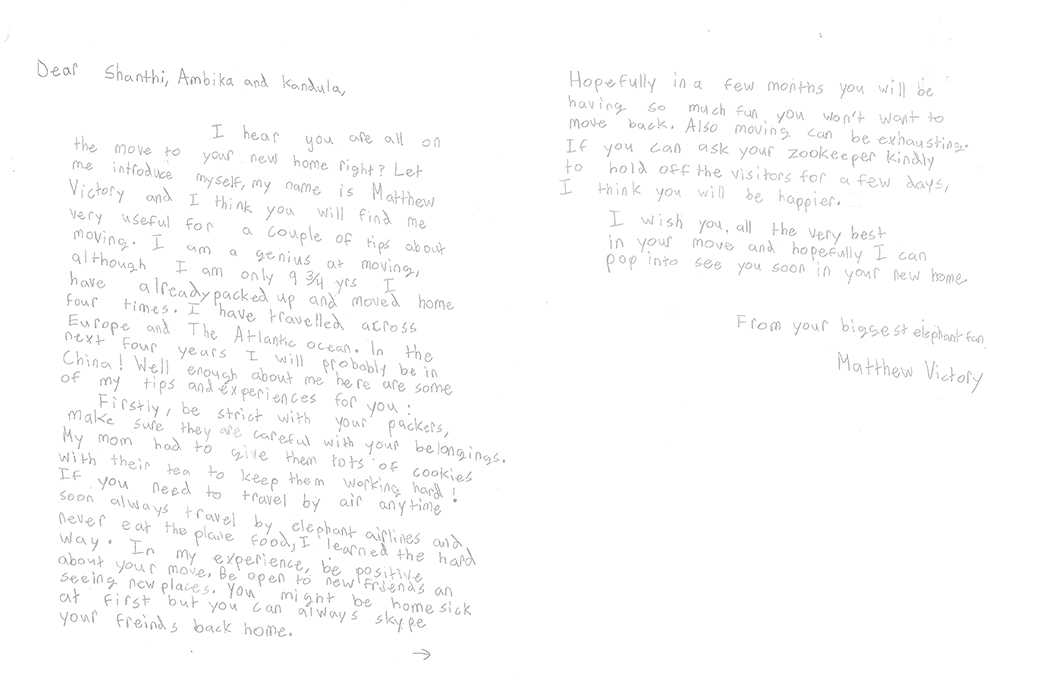 Dear Shanthi, Ambika and Kandula,
I hear you are all on
the move to your new home right? Let
me introduce myself, my name is Matthew
Victory and I think you will find me
very useful for a couple of tips about
moving. I am a genius at moving,
although I am only 9 3/4 yrs I
have already packed up and moved home
four times. I have travelled across
Europe and The Atlantic ocean. In the
next four years I will probably be in
China! Well enough about me here are some
of my tips and experiences for you:
Firstly, be strict with your packers,
make sure they are careful with your belongings.
My mom had to give them lots of cookies
with their tea to keep them working hard!
If you need to travel by air anytime
soon always travel by elephant airlines and
never eat the plane food, I learned the hard
way. In my experience, be positive
about your move. Be open to new friends an
seeing new places. You might be home sick
at first but you can always skype
your freinds back home.
→
Hopefully in a few months you will be
having so much fun you won't want to
move back. Also moving can be exhausting.
If you can ask your zookeeper kindly
to hold off the visitors for a few days,
I think you will be happier.
I wish you, all the very best
in your move and hopefully I can
pop into see you soon in your new home.
From your biggest elephant fan
Matthew Victory